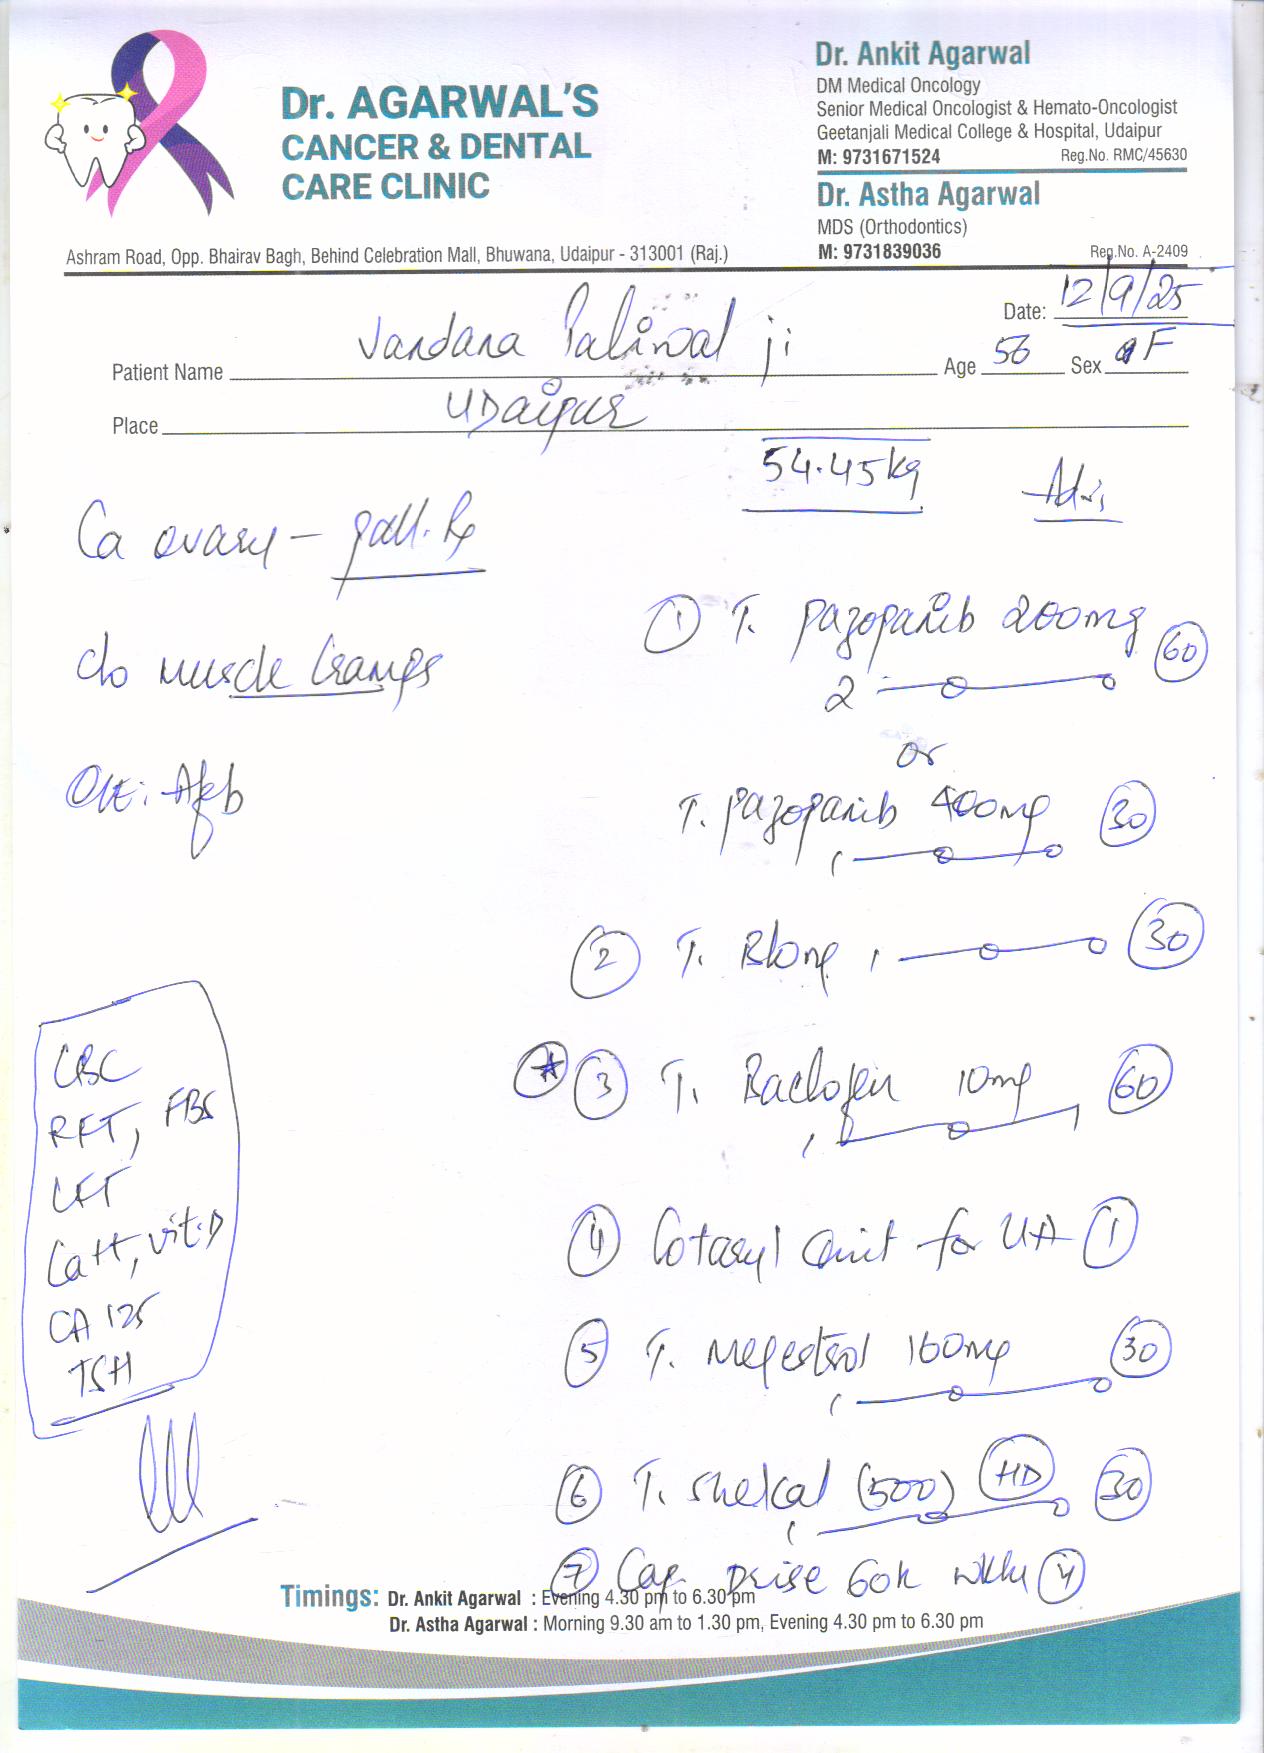 Dr. AGARWAL'S
CANCER & DENTAL
CARE CLINIC
Ashram Road, Opp. Bhairav Bagh, Behind Celebration Mall, Bhuwana, Udaipur - 313001 (Raj.)
Dr. Ankit Agarwal
DM Medical Oncology
Senior Medical Oncologist & Hemato-Oncologist
Geetanjali Medical College & Hospital, Udaipur
M: 9731671524 Reg.No. RMC/45630
Dr. Astha Agarwal
MDS (Orthodontics)
M: 9731839036 Reg.No. A-2409
Date: 12/9/25
Patient Name Vandana Paliwal ji Age 56 Sex F
Place Udaipur
54.45kg
Adv,
Ca ovary - pall. Rx
c/o muscle cramps
O/E: Afeb
CBC
RFT, FBS
LFT
Ca++, vit.D
CA 125
TSH
① T. pazopanib 200mg 60
2 —o—o
or
T. pazopanib 400mg 30
1 —o—o
② T. Blong 1 —o—o 30
* ③ T. Baclofen 10mg 60
1 —o—1
④ Cotaryl oint for UA 1
⑤ T. Megestrol 160mg 30
1 —o—o
⑥ T. Shelcal (500) HD 30
1 —o—o
⑦ Cap 60k wkly 4
Timings: Dr. Ankit Agarwal : Evening 4.30 pm to 6.30 pm
Dr. Astha Agarwal : Morning 9.30 am to 1.30 pm, Evening 4.30 pm to 6.30 pm